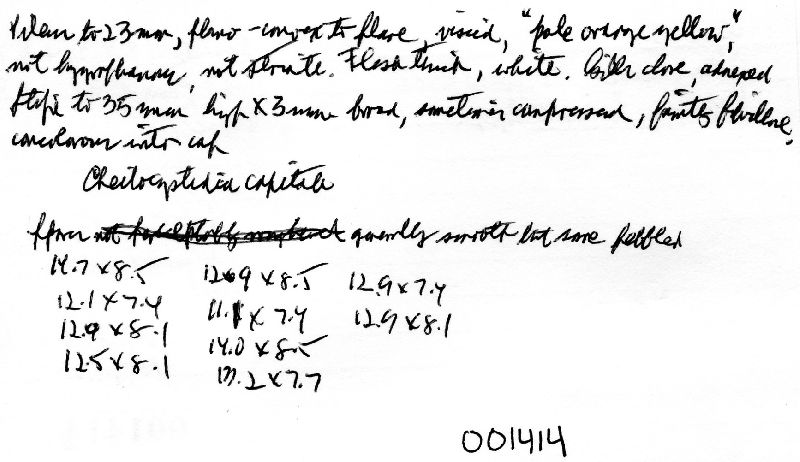 Pileus to 23 mm, plano-convex to plane, viscid, "pale orange yellow,"
not hygrophanous, not striate. Flesh thick, white. Gills close, adnexed
Stipe to 35 mm high X 3 mm broad, sometimes compressed, faintly fibrillose,
concolorous with cap
Cheilocystidia capitate
Spores not perceptibly roughened generally smooth but some pebbled
14.7 x 8.5 12.9 x 8.5 12.9 x 7.4
12.1 x 7.4 11.1 x 7.4 12.9 x 8.1
12.9 x 8.1 14.0 x 8.5
12.5 x 8.1 13.2 x 7.7
001414